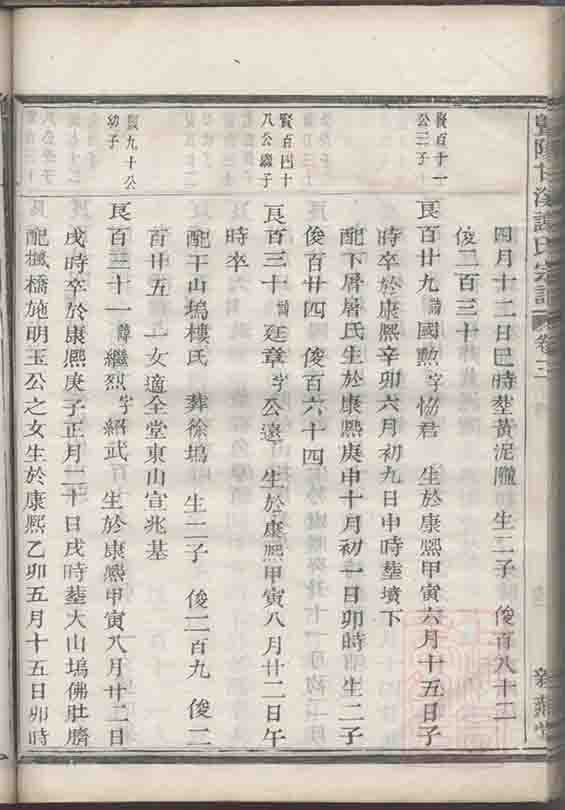 暨陽 氏宗譜 卷三
四月十二日巳時塟黄泥隴 生二子 俊百八十二
俊二百三十
賢百十一
公三子
良百廿九諱國勲字協君 生於康熙甲寅六月十五日子
時卒於康熙辛卯六月初九日申時塟墳下
配下屠屠氏生於康熙庚申十月初一日卯時 生二子
俊百廿四 俊百六十四
賢百四十
八公繼子
良百三十諱廷章字公遠 生於康熙甲寅八月廿二日午
時卒
配干山塢樓氏 葬徐塢 生二子 俊二百九 俊二
百廿五 一女適全堂東山宣兆基
賢九十公
幼子
良百三十一諱繼烈字紹武 生於康熙甲寅八月廿二日
戌時卒於康熙庚子正月二十日戌時塟大山塢佛肚臍
配楓橋施明玉公之女生於康熙乙卯五月十五日卯時